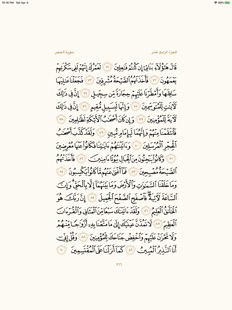 سورة الحجر
الجزء الرابع عشر
قَالَ هَٰٓؤُلَآءِ بَنَاتِيٓ إِن كُنتُمۡ فَٰعِلِينَ ٧١ لَعَمۡرُكَ إِنَّهُمۡ لَفِي سَكۡرَتِهِمۡ
يَعۡمَهُونَ ٧٢ فَأَخَذَتۡهُمُ ٱلصَّيۡحَةُ مُشۡرِقِينَ ٧٣ فَجَعَلۡنَا عَٰلِيَهَا
سَافِلَهَا وَأَمۡطَرۡنَا عَلَيۡهِمۡ حِجَارَةٗ مِّن سِجِّيلٍ ٧٤ إِنَّ فِي ذَٰلِكَ
لَأٓيَٰتٖ لِّلۡمُتَوَسِّمِينَ ٧٥ وَإِنَّهَا لَبِسَبِيلٖ مُّقِيمٍ ٧٦ إِنَّ فِي ذَٰلِكَ
لَأٓيَةٗ لِّلۡمُؤۡمِنِينَ ٧٧ وَإِن كَانَ أَصۡحَٰبُ ٱلۡأَيۡكَةِ لَظَٰلِمِينَ ٧٨
فَٱنتَقَمۡنَا مِنۡهُمۡ وَإِنَّهُمَا لَبِإِمَامٖ مُّبِينٖ ٧٩ وَلَقَدۡ كَذَّبَ أَصۡحَٰبُ
ٱلۡحِجۡرِ ٱلۡمُرۡسَلِينَ ٨٠ وَءَاتَيۡنَٰهُمۡ ءَايَٰتِنَا فَكَانُواْ عَنۡهَا مُعۡرِضِينَ ٨١
وَكَانُواْ يَنۡحِتُونَ مِنَ ٱلۡجِبَالِ بُيُوتًا ءَامِنِينَ ٨٢ فَأَخَذَتۡهُمُ
ٱلصَّيۡحَةُ مُصۡبِحِينَ ٨٣ فَمَآ أَغۡنَىٰ عَنۡهُم مَّا كَانُواْ يَكۡسِبُونَ ٨٤
وَمَا خَلَقۡنَا ٱلسَّمَٰوَٰتِ وَٱلۡأَرۡضَ وَمَا بَيۡنَهُمَآ إِلَّا بِٱلۡحَقِّۗ وَإِنَّ
ٱلسَّاعَةَ لَأٓتِيَةٞۖ فَٱصۡفَحِ ٱلصَّفۡحَ ٱلۡجَمِيلَ ٨٥ إِنَّ رَبَّكَ هُوَ
ٱلۡخَلَّٰقُ ٱلۡعَلِيمُ ٨٦ وَلَقَدۡ ءَاتَيۡنَٰكَ سَبۡعٗا مِّنَ ٱلۡمَثَانِي وَٱلۡقُرۡءَانَ
ٱلۡعَظِيمَ ٨٧ لَا تَمُدَّنَّ عَيۡنَيۡكَ إِلَىٰ مَا مَتَّعۡنَا بِهِۦٓ أَزۡوَٰجٗا مِّنۡهُمۡ
وَلَا تَحۡزَنۡ عَلَيۡهِمۡ وَٱخۡفِضۡ جَنَاحَكَ لِلۡمُؤۡمِنِينَ ٨٨ وَقُلۡ إِنِّيٓ
أَنَا ٱلنَّذِيرُ ٱلۡمُبِينُ ٨٩ كَمَآ أَنزَلۡنَا عَلَى ٱلۡمُقۡتَسِمِينَ ٩٠
٢٦٦